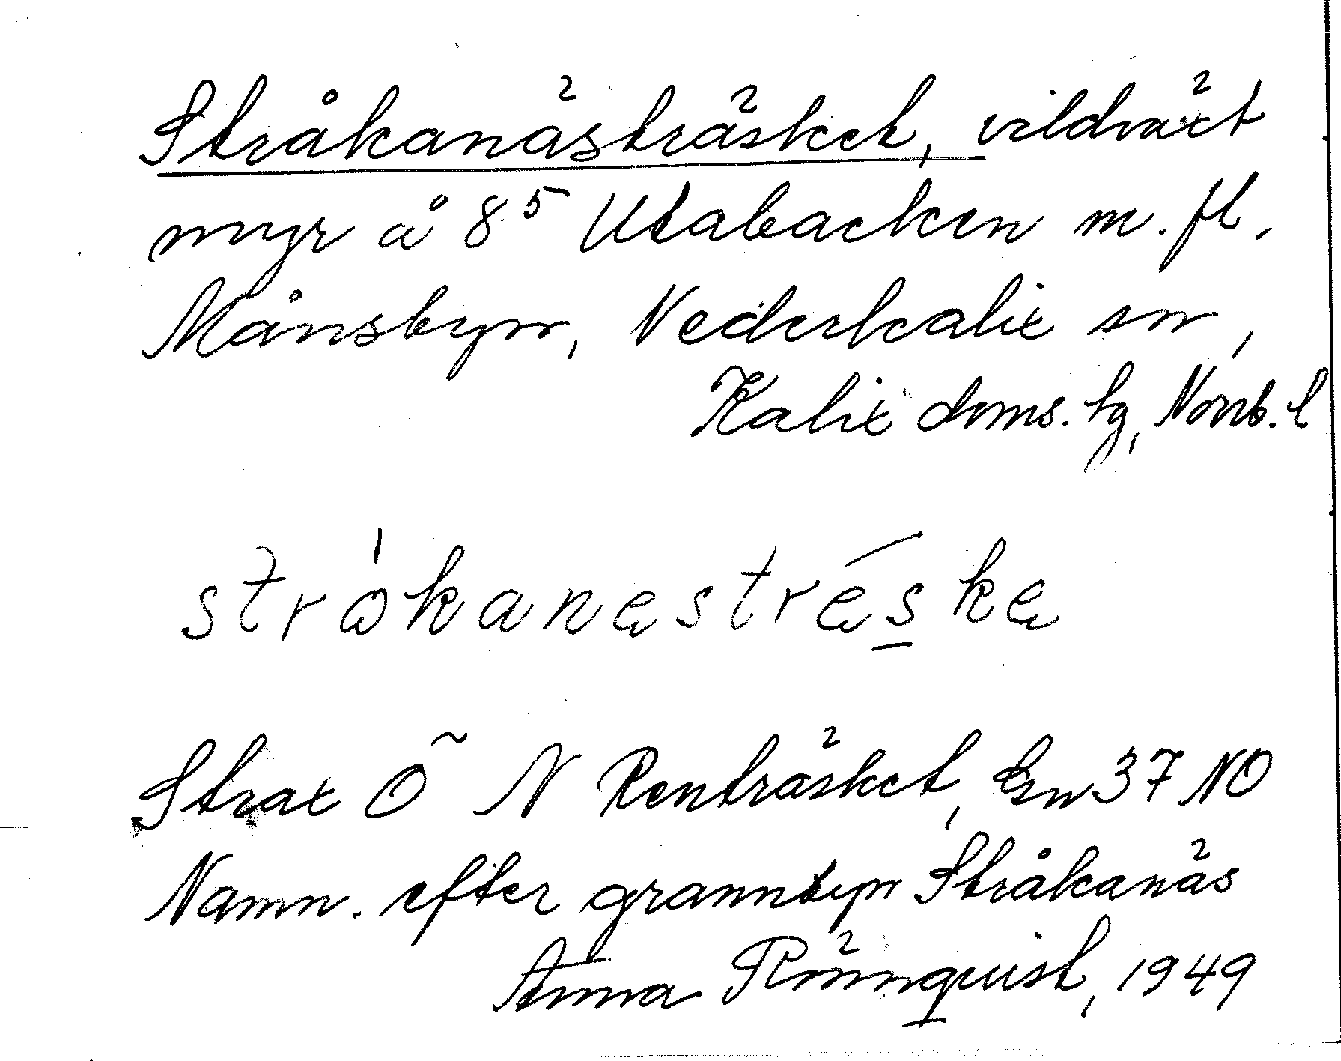 Stråkanästräsket, vildväxt
myr å 8⁵ Utabacken m. fl.
Månsbyn, Nederkalix sn,
Kalix doms. tg, Norrb. l
strȧkanestréske
Strax Ö N Renträsket, Gsn 37 NO
Namn. efter grannbyn Stråkanäs
Anna Rönnquist, 1949